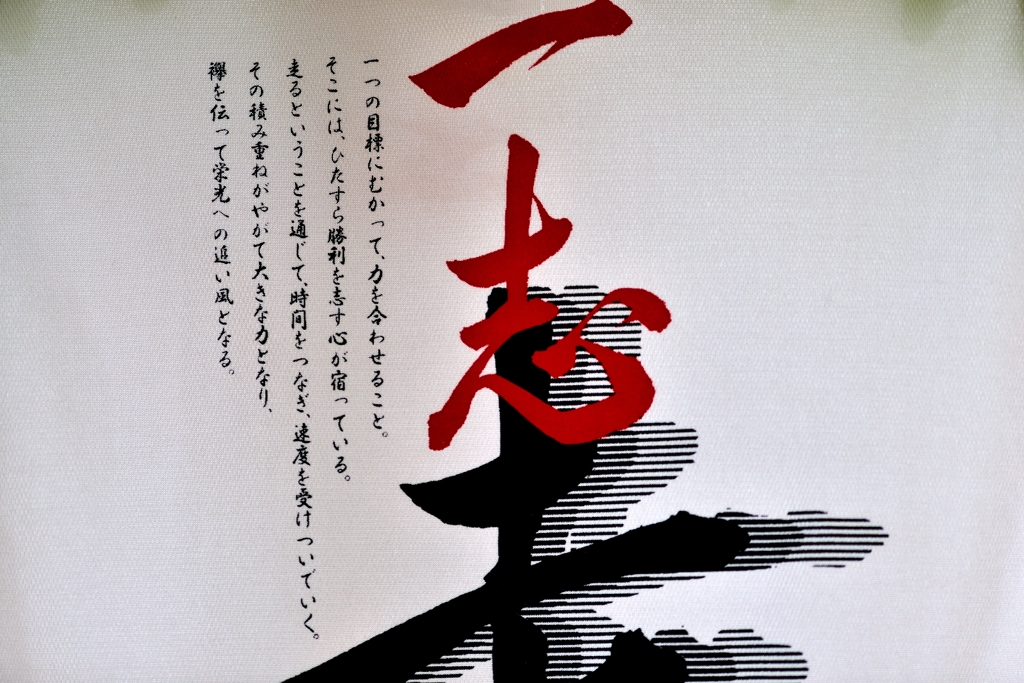 一志
一つの目標にむかって、力を合わせること。
そこには、ひたすら勝利を志す心が宿っている。
走るということを通じて、時間をつなぎ、速度を受けついでいく。
その積み重ねがやがて大きな力となり、
襷を伝って栄光への追い風となる。